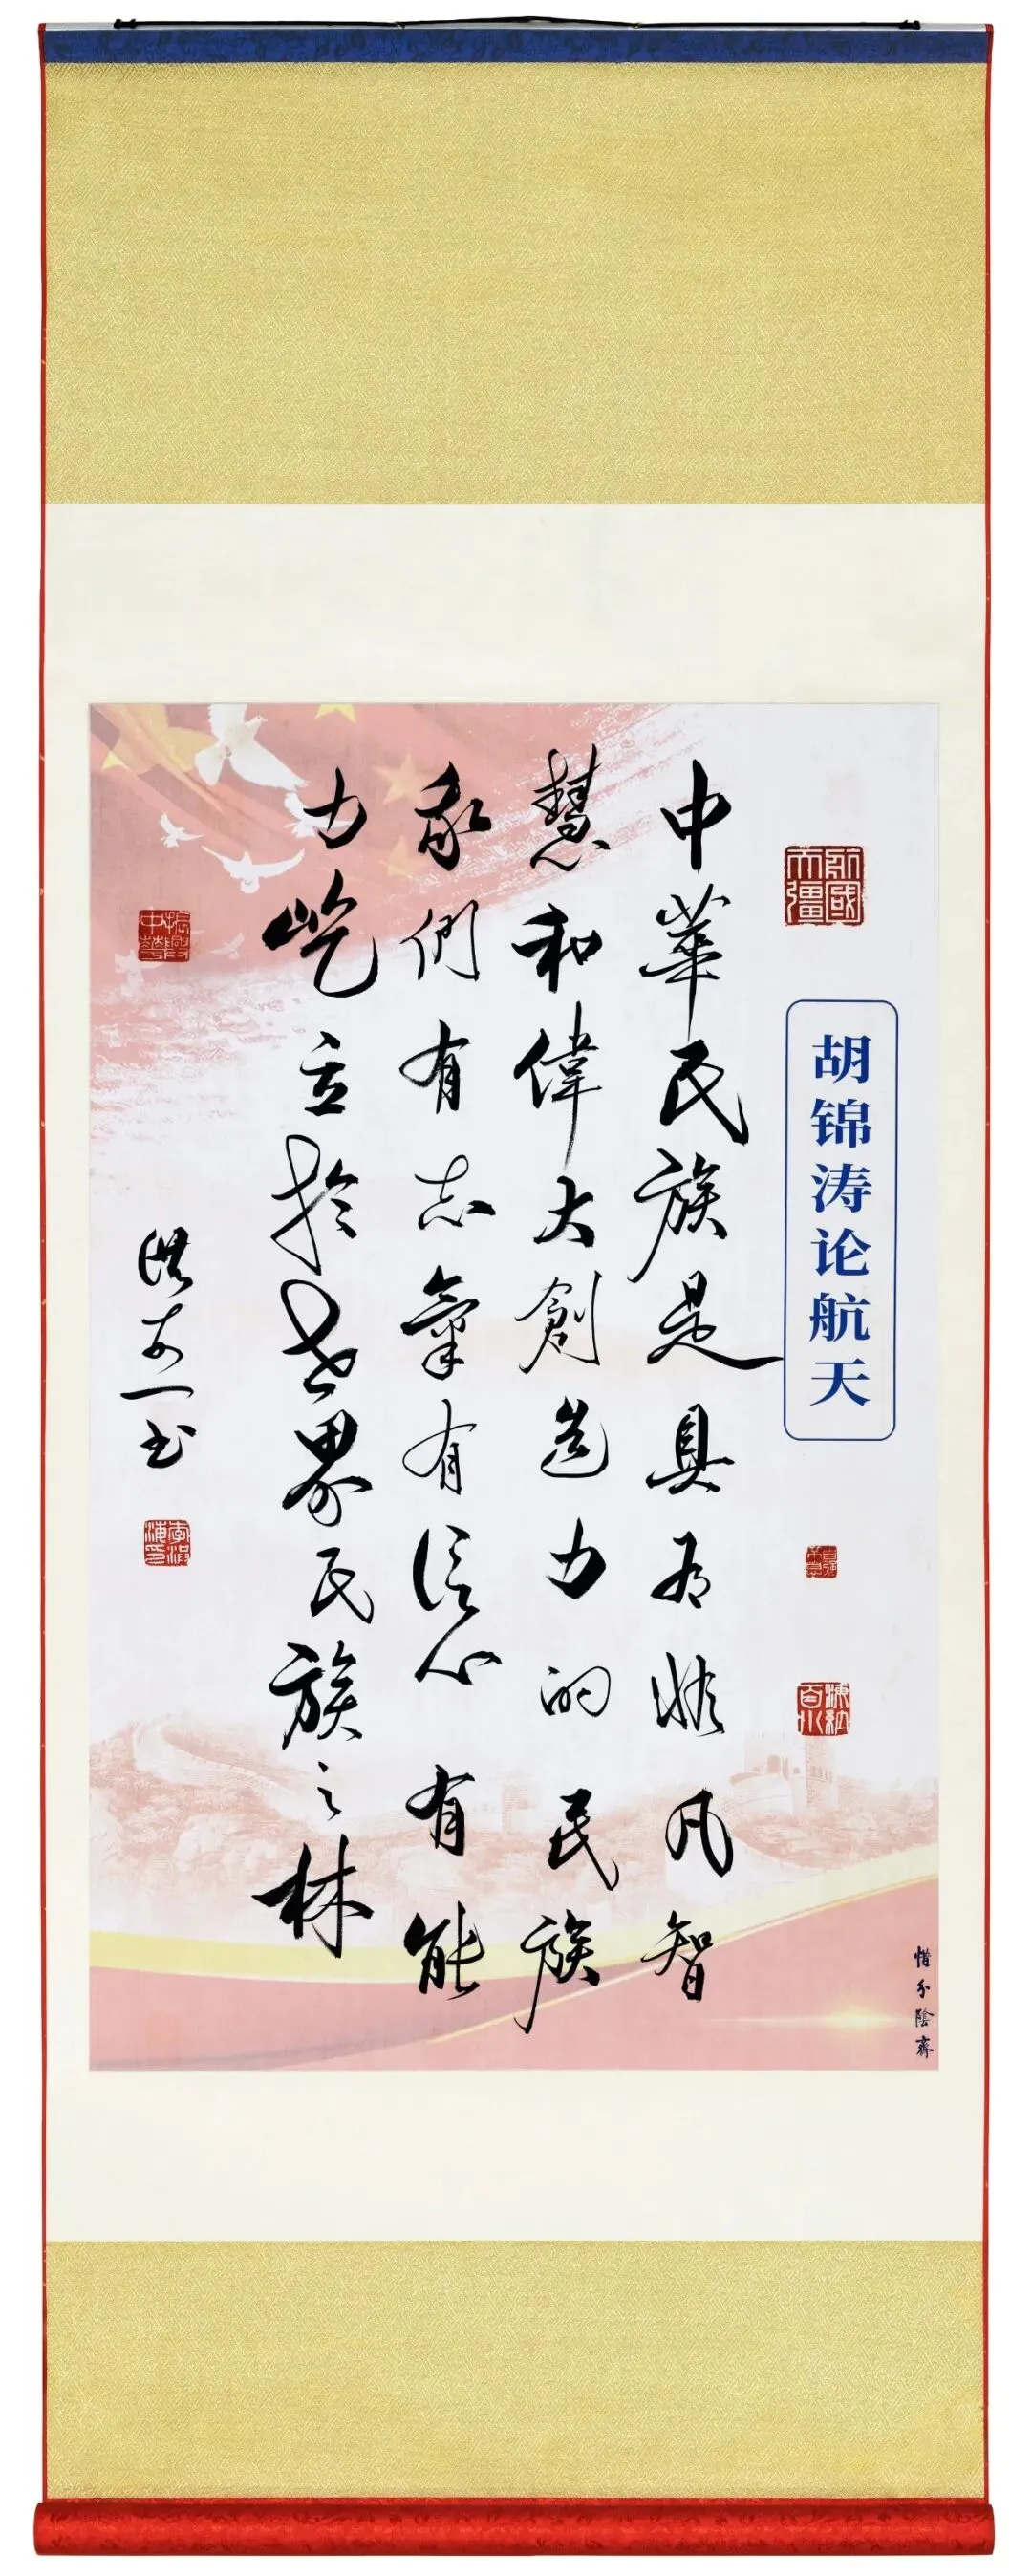 胡锦涛论航天
中華民族是具有非凡智
慧和偉大創造力的民族
我們有志氣有信心有能
力屹立於世界民族之林
洪书
振興中華
惜分陰齋